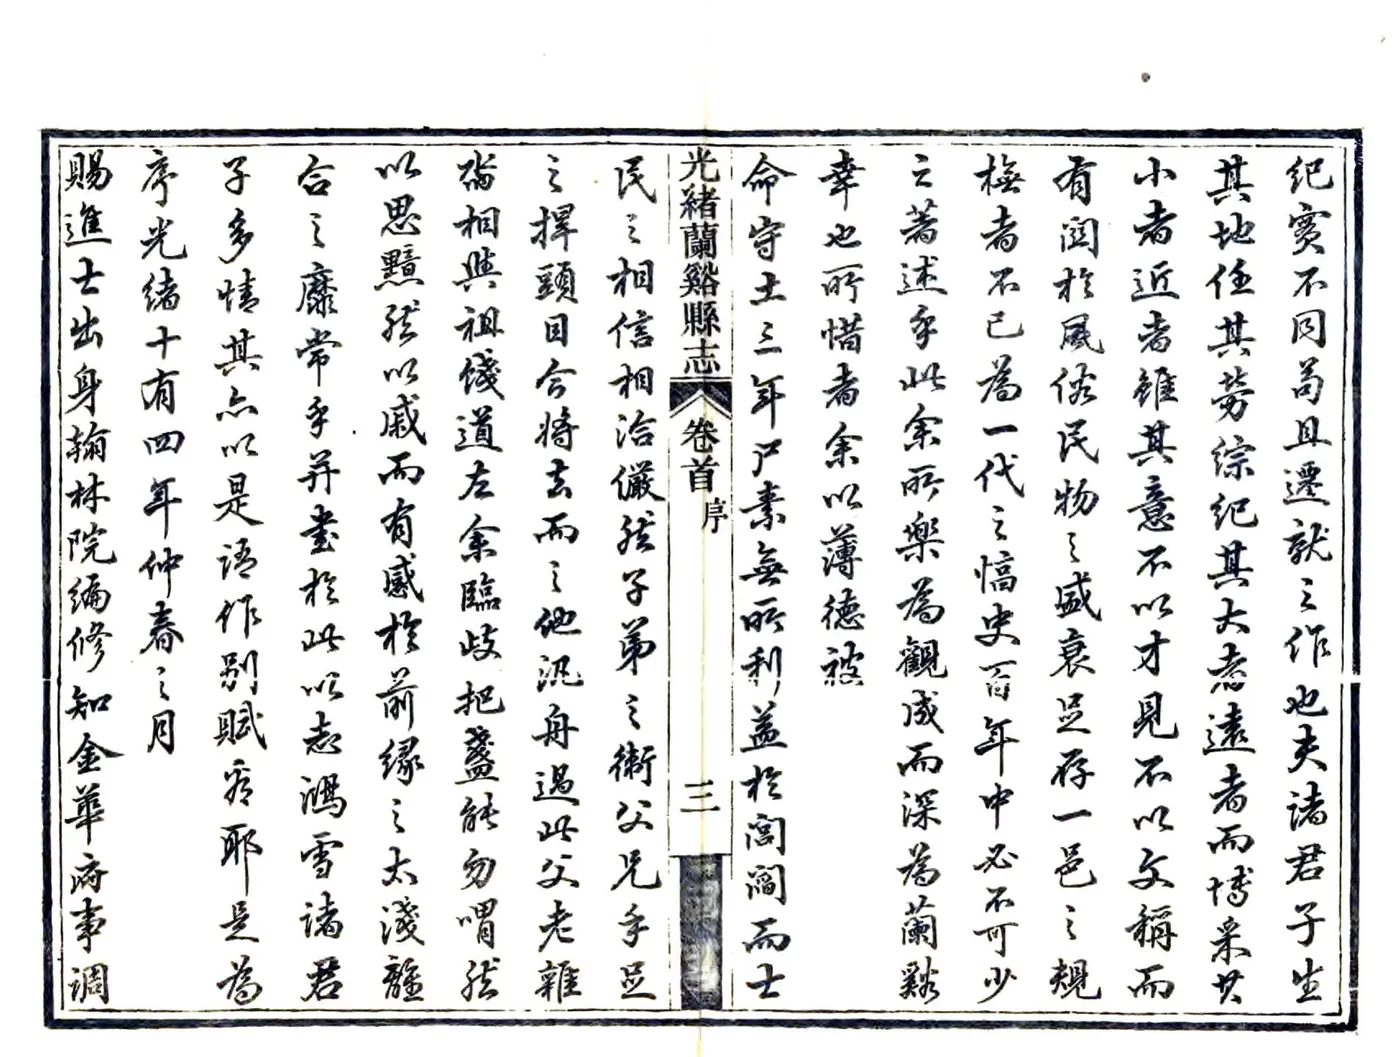 紀實不同苟且遷就之作也夫諸君子生
其地任其勞綜紀其大者遠者而博采其
小者近者雖其意不以才見不以文稱而
有関於風俗民物之盛衰足存一邑之規
橅者不已為一代之信史百年中必不可少
之著述乎此余所樂為觀成而深為蘭谿
幸也所惜者余以薄德被
命守土三年尸素無所利益於閭閻而士
光緒蘭谿縣志
卷首
序
三
民之相信相洽儼然子弟之衛父兄手足
之捍頭目今將去而之他汎舟過此父老雜
遝相與祖餞道左余臨歧把盞能勿喟然
以思黯然以戚而有感於前緣之太淺離
合之靡常乎并書於此以志鴻雪諸君
子多情其亦以是語作別賦看耶是為
序光緒十有四年仲春之月
賜進士出身翰林院編修知金華府事調